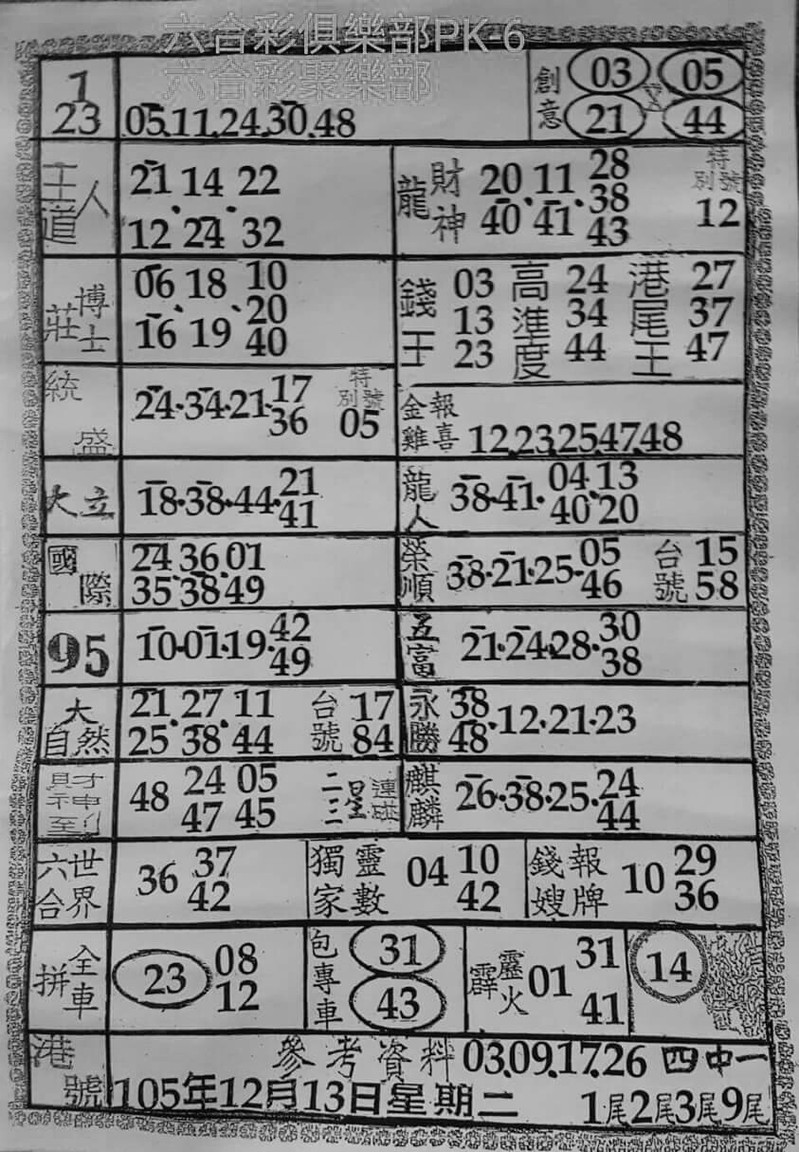 六合彩俱樂部PK-6
六合彩聚樂部
1
23
05.11.24.30.48
創意
03 05
21 44
王道人
21 14 22
12 24 32
龍財神
20 11 28
38
40 41 43
特別號
12
莊博士
06 18 10
20
16 19 40
錢王
03
13
23
高準度
24
34
44
港尾王
27
37
47
統盛
24.34.21.17
36
特別號
05
金雞報喜
12.23.25.47.48
大立
18.38.44.21
41
龍人
38.41.04.13
40 20
國際
24 36 01
35 38 49
榮順
38.21.25.05
46
台號
15
58
95
10.01.19.42
49
五富
21.24.28.30
38
大自然
21 27 11
25 38 44
台號
17
84
永勝
38
48.12.21.23
財神到
48 24 05
47 45
二三星
麒麟
26.38.25.24
44
六合世界
36 37
42
獨家靈數
04 10
42
錢嫂報牌
10 29
36
全車拼
23 08
12
包專車
31
43
霹靂火
01 31
41
14
港號
參考資料 03.09.17.26 四中一
105年12月13日星期二 1尾2尾3尾9尾